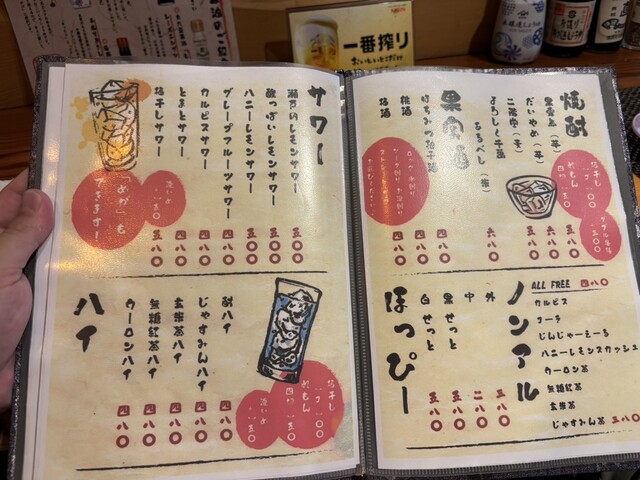 一番搾り
おいしいとこだけ
サワー
瀬戸内レモンサワー 五〇〇
酸っぱいレモンサワー 五〇〇
ハニーレモンサワー 五〇〇
グレープフルーツサワー 四八〇
カルピスサワー 四八〇
とまとサワー 四八〇
梅干しサワー 五八〇
「めが」も
できます！
ハイ
酎ハイ 四八〇
じゃすみんハイ 四八〇
玄米茶ハイ 四八〇
無糖紅茶ハイ 四八〇
ウーロンハイ 四八〇
梅干し
一つ一〇〇
れもん
四切一五〇
焼酎
黒霧島（芋） 五八〇
だいやめ（芋） 六八〇
二階堂（麦） 五八〇
よろしく千萬
あるべし（米） 六八〇
梅干し
一つ一〇〇
れもん
果実酒
はちみつ柚子酒 四八〇
桃酒 四八〇
梅酒 四八〇
ノンアル
ALL FREE 四八〇
カルピス
コーラ
じんじゃーえーる
ハニーレモンスカッシュ
ウーロン茶
無糖紅茶
玄米茶
じゃすみん茶 三八〇
ほっぴー
外 三八〇
中 二八〇
黒せっと 五八〇
白せっと 五八〇